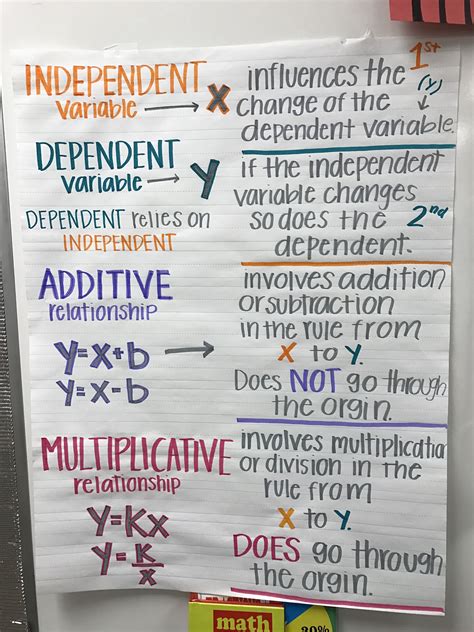 INDEPENDENT
variable → X
influences the 1st
change of the (y)
dependent variable.
DEPENDENT
variable → Y
DEPENDENT relies on
INDEPENDENT
if the independent
variable changes
so does the 2nd
dependent.
ADDITIVE
relationship
y=x+b →
y=x-b
involves addition
or subtraction
in the rule from
X to Y.
Does NOT go through
the orgin.
MULTIPLICATIVE
relationship
y=Kx
y=K/x
involves multiplication
or division in the
rule from
X to Y.
DOES go through
the orgin.
math
30%